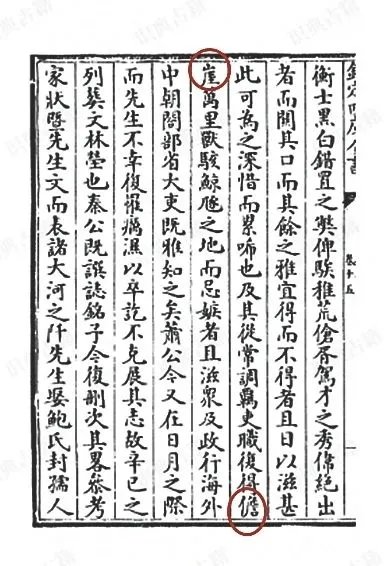 欽定四庫全書
卷十五
衡士黑白錯置之弊俾駿雅荒傖齊駕才之秀偉絕出
者而關其口而其餘之雅宜得而不得者且日以滋甚
此可為之深惜而累唏也及其從常調羈吏職復得儋
崖萬里獸駭鯨之地而忌嫉者且滋衆及政行海外
中朝閣部省大吏既雅知之矣蕭公今又在日月之際
而先生不幸復罹濕以卒訖不克展其志故辛巳之
列葬文林塋也秦公既譔誌銘予今復刪次其畧叅考
家狀暨先生文而表諸大河之阡先生娶鮑氏封孺人